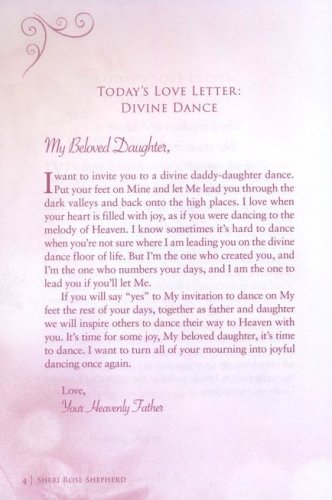 TODAY'S LOVE LETTER:
DIVINE DANCE
My Beloved Daughter,
I want to invite you to a divine daddy-daughter dance.
Put your feet on Mine and let Me lead you through the
dark valleys and back onto the high places. I love when
your heart is filled with joy, as if you were dancing to the
melody of Heaven. I know sometimes it's hard to dance
when you're not sure where I am leading you on the divine
dance floor of life. But I'm the one who created you, and
I'm the one who numbers your days, and I am the one to
lead you if you'll let Me.
If you will say "yes" to My invitation to dance on My
feet the rest of your days, together as father and daughter
we will inspire others to dance their way to Heaven with
you. It's time for some joy, My beloved daughter, it's time
to dance. I want to turn all of your mourning into joyful
dancing once again.
Love,
Your Heavenly Father
4 | SHERI ROSE SHEPHERD